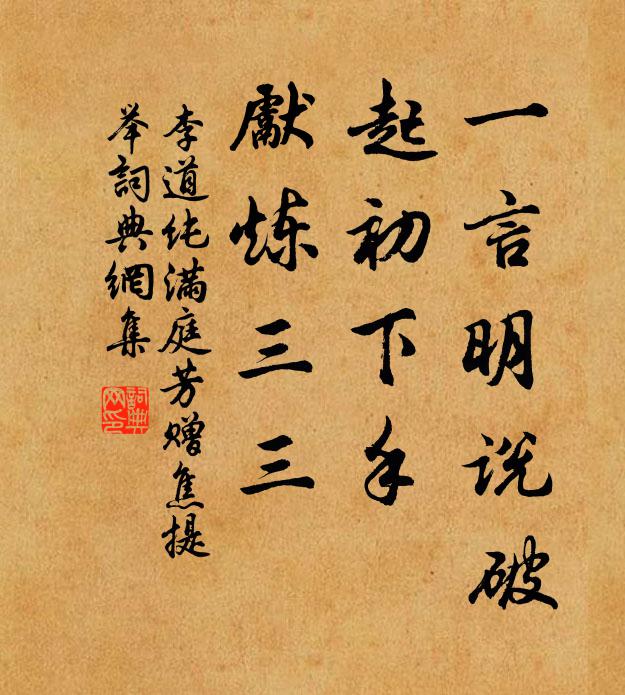 一言明说破
起初下手
獻炼三三
李道纯满庭芳赠焦提
举詞典網集
詞典网印